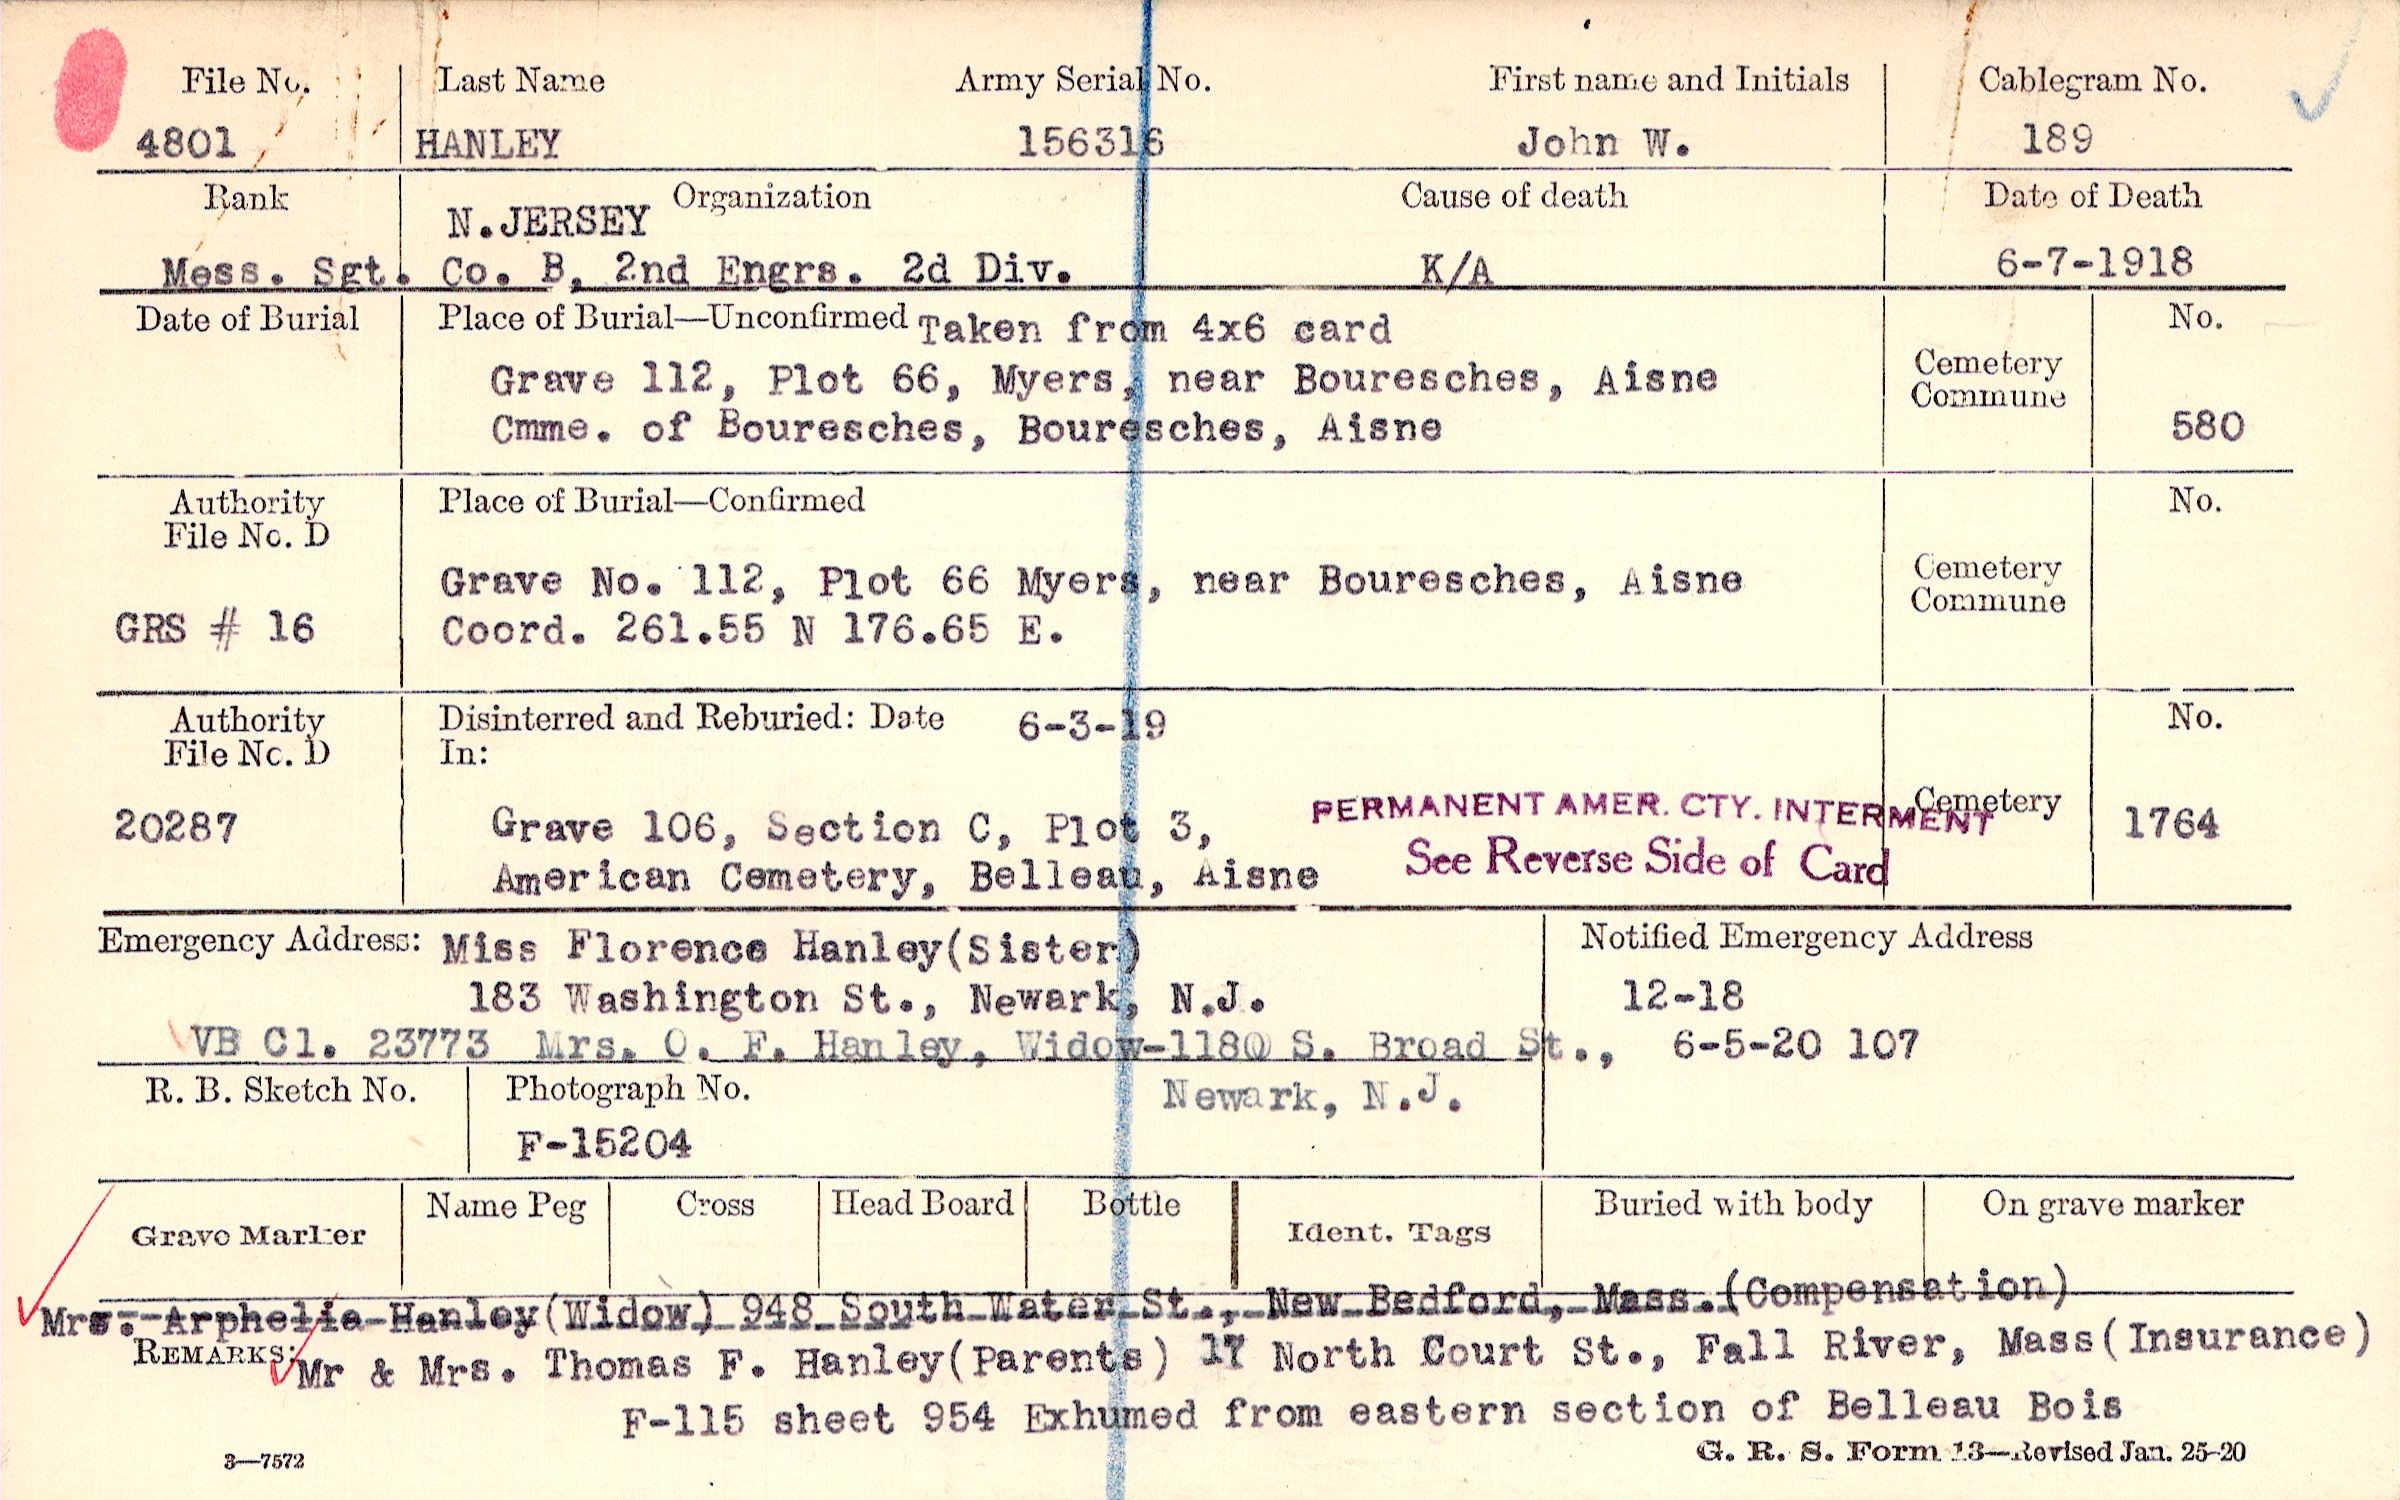 File No. Last Name Army Serial No. First name and Initials Cablegram No.
4801 HANLEY 156316 John W. 189
Rank Organization Cause of death Date of Death
N.JERSEY
Mess. Sgt. Co. B, 2nd Engrs. 2d Div. K/A 6-7-1918
Date of Burial Place of Burial—Unconfirmed Taken from 4x6 card No.
Grave 112, Plot 66, Myers, near Bouresches, Aisne Cemetery
Commune
Cmme. of Bouresches, Bouresches, Aisne 580
Authority Place of Burial—Confirmed No.
File No. D
Grave No. 112, Plot 66 Myers, near Bouresches, Aisne Cemetery
Commune
GRS # 16 Coord. 261.55 N 176.65 E.
Authority Disinterred and Reburied: Date 6-3-19 No.
File No. D In:
PERMANENT AMER. CTY. INTERMENT Cemetery
20287 Grave 106, Section C, Plot 3, 1764
See Reverse Side of Card
American Cemetery, Belleau, Aisne
Emergency Address: Miss Florence Hanley(Sister) Notified Emergency Address
183 Washington St., Newark, N.J. 12-18
VB Cl. 23773 Mrs. O. F. Hanley, Widow-1180 S. Broad St., 6-5-20 107
R. B. Sketch No. Photograph No. Newark, N.J.
F-15204
Grave Marker Name Peg Cross Head Board Bottle Ident. Tags Buried with body On grave marker
Mrs. Arphelia Hanley(Widow) 948 South Water St., New Bedford, Mass.(Compensation)
REMARKS: Mr & Mrs. Thomas F. Hanley(Parents) 17 North Court St., Fall River, Mass(Insurance)
F-115 sheet 954 Exhumed from eastern section of Belleau Bois
3—7572 G. R. S. Form 13—Revised Jan. 25-20